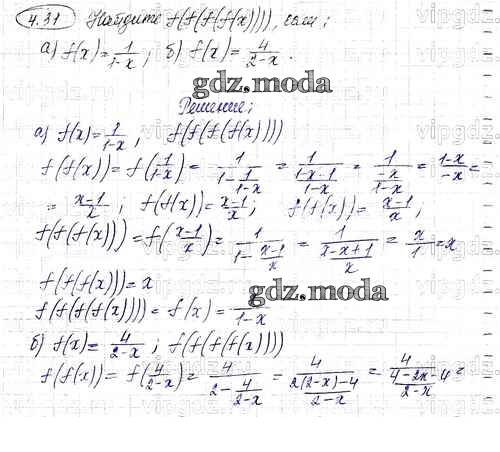 4.31 Найдите f(f(f(f(x)))), если;
а) f(x)=1/(1-x); б) f(x)=4/(2-x).
gdz.moda
Решение;
а) f(x)=1/(1-x), f(f(f(f(x))))
f(f(x))=f(1/(1-x))=1/(1-1/(1-x))=1/((1-x-1)/(1-x))=1/(-x/(1-x))=(1-x)/-x=
=(x-1)/x; f(f(x))=(x-1)/x; f(f(x))=(x-1)/x;
f(f(f(x)))=f((x-1)/x)=1/(1-(x-1)/x)=1/((x-x+1)/x)=x/1=x
f(f(f(x)))=x
gdz.moda
f(f(f(f(x))))=f(x)=1/(1-x)
б) f(x)=4/(2-x); f(f(f(f(x))))
f(f(x))=f(4/(2-x))=4/(2-4/(2-x))=4/((2(2-x)-4)/(2-x))=4/((4-2x-4)/(2-x))=